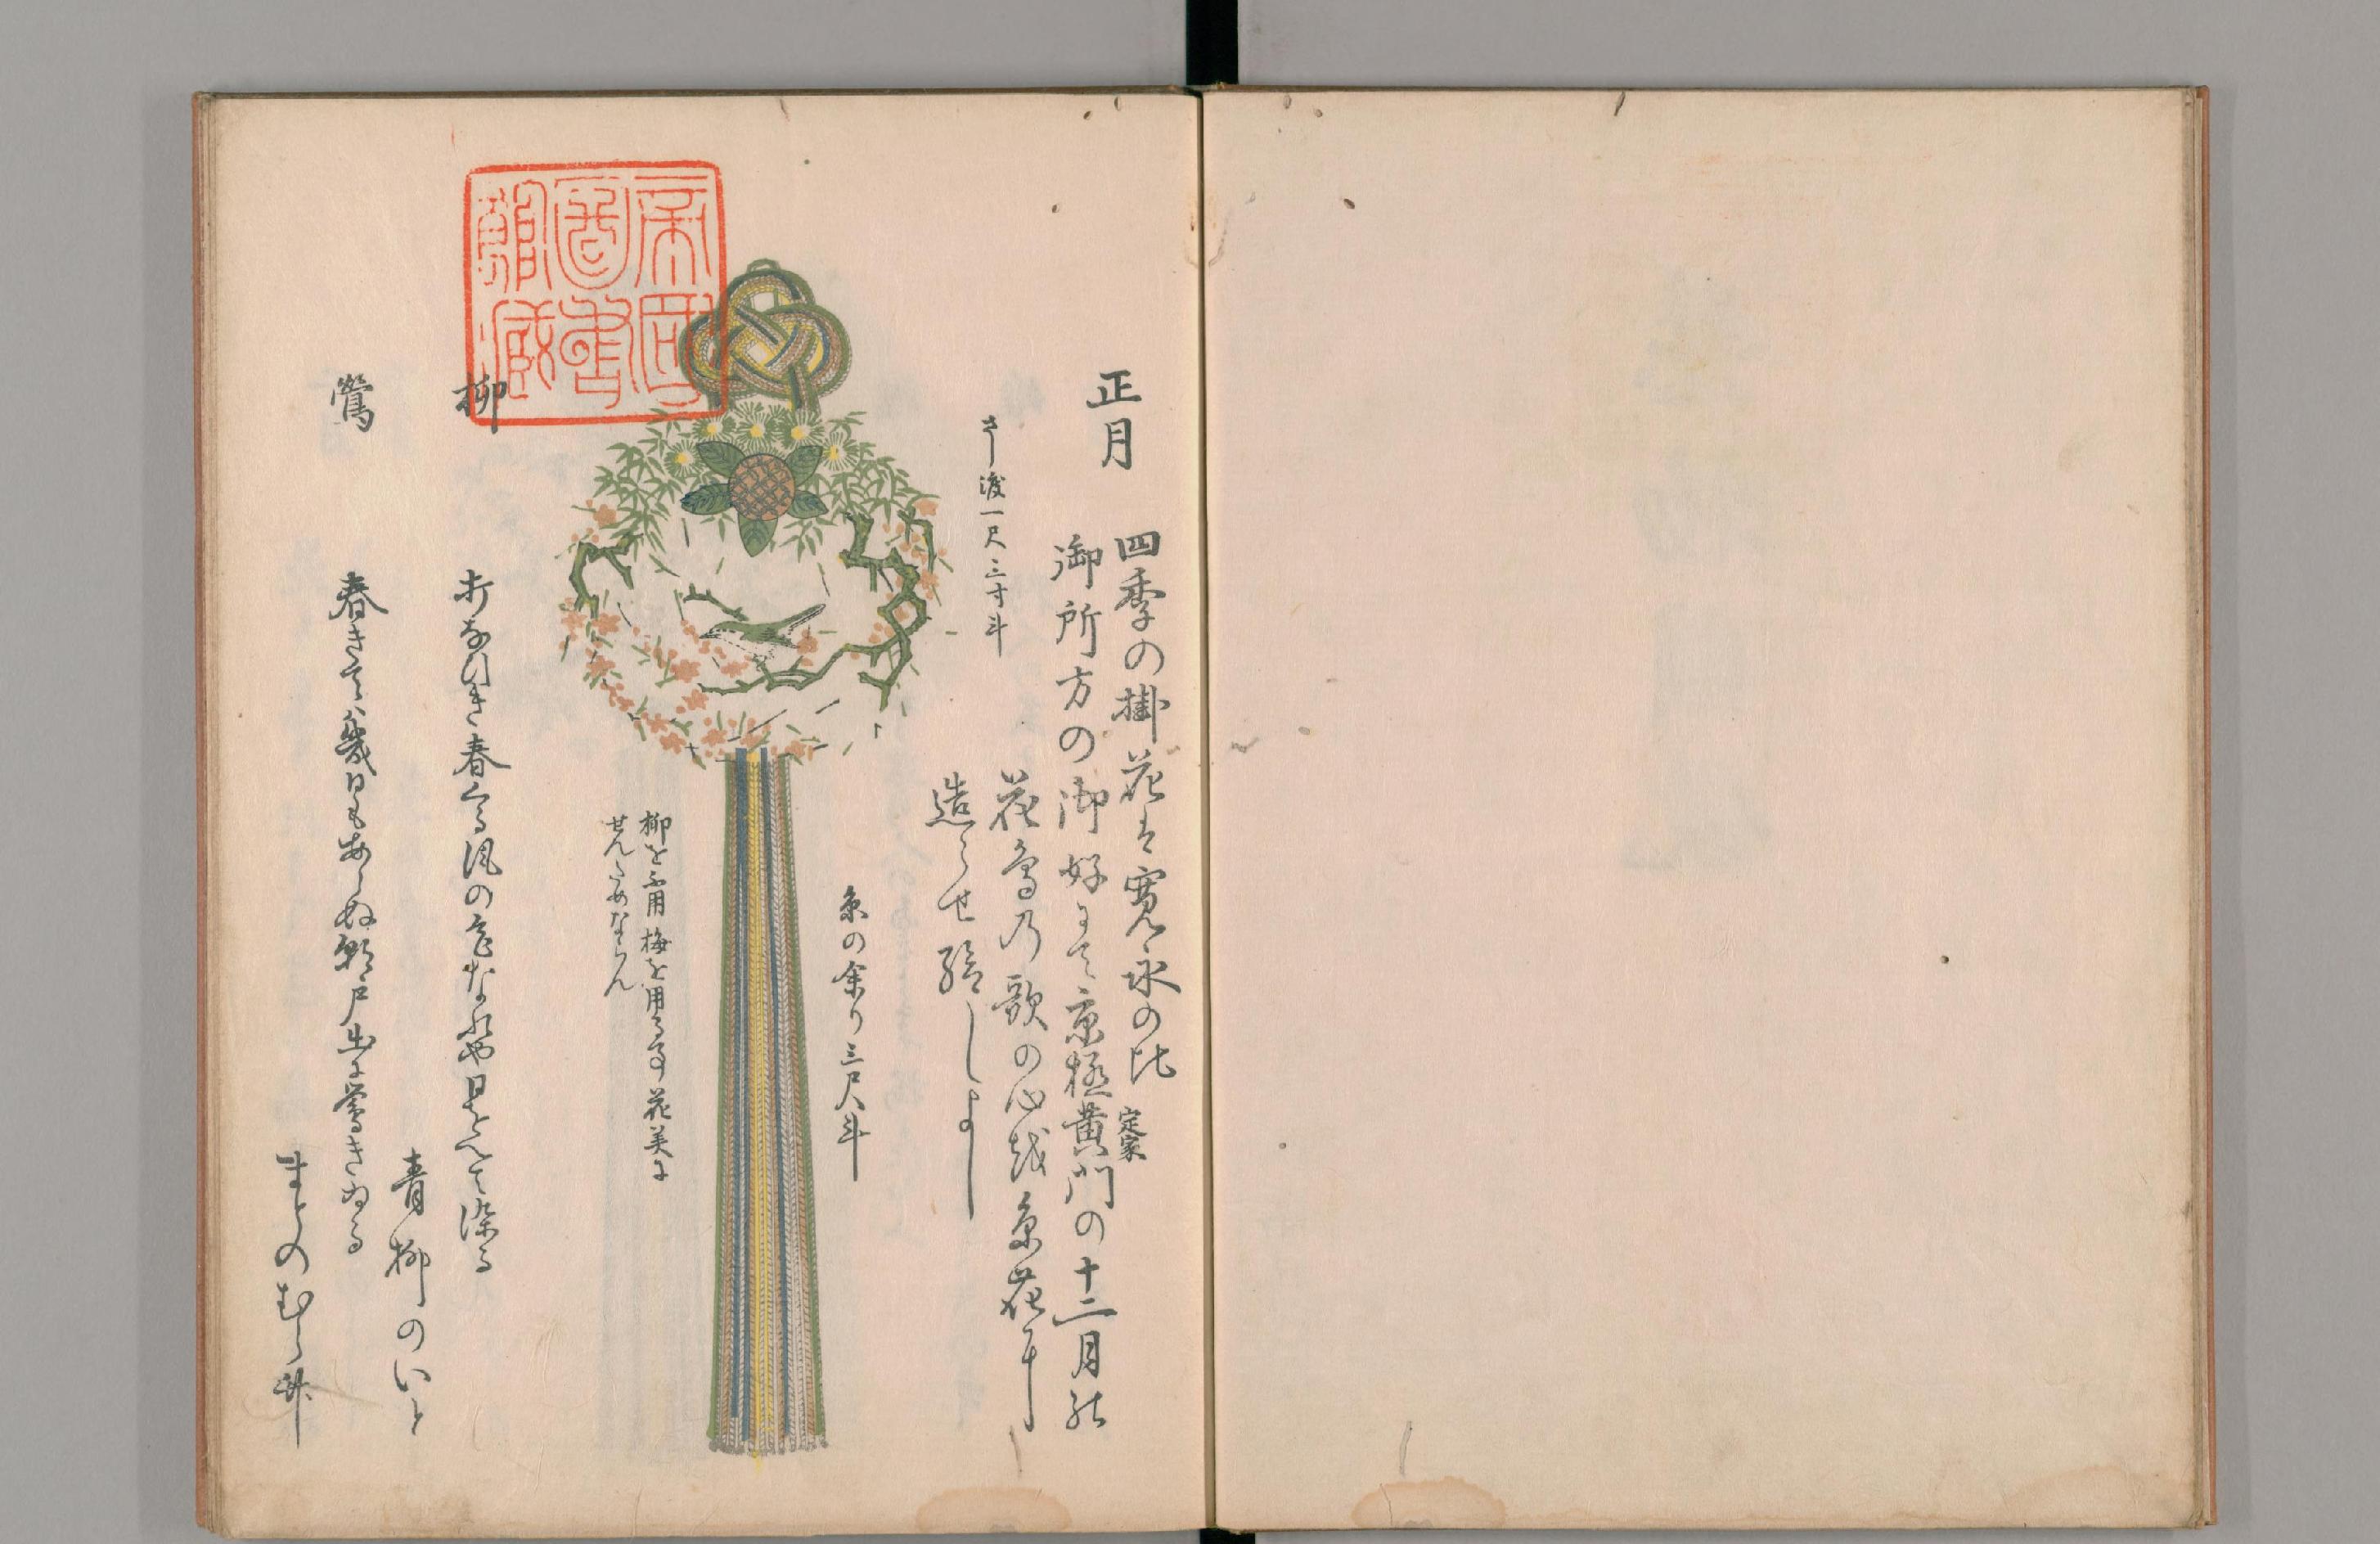 正月
四季の掛花は寛永の比
御所方の御好にて京極黄門の十二月の
定家
花鳥乃歌の心越糸花に
造らせ給しよし
さし渡一尺三寸斗
糸の余り三尺斗
柳を不用梅を用る事花美に
せんためならん
帝国
図書
館蔵
柳
打なひき春くる風の色なれや日をへて染る
青柳のいと
鶯
春きてハ幾日もあらぬ朝戸出に鶯きゐる
まとのむら竹